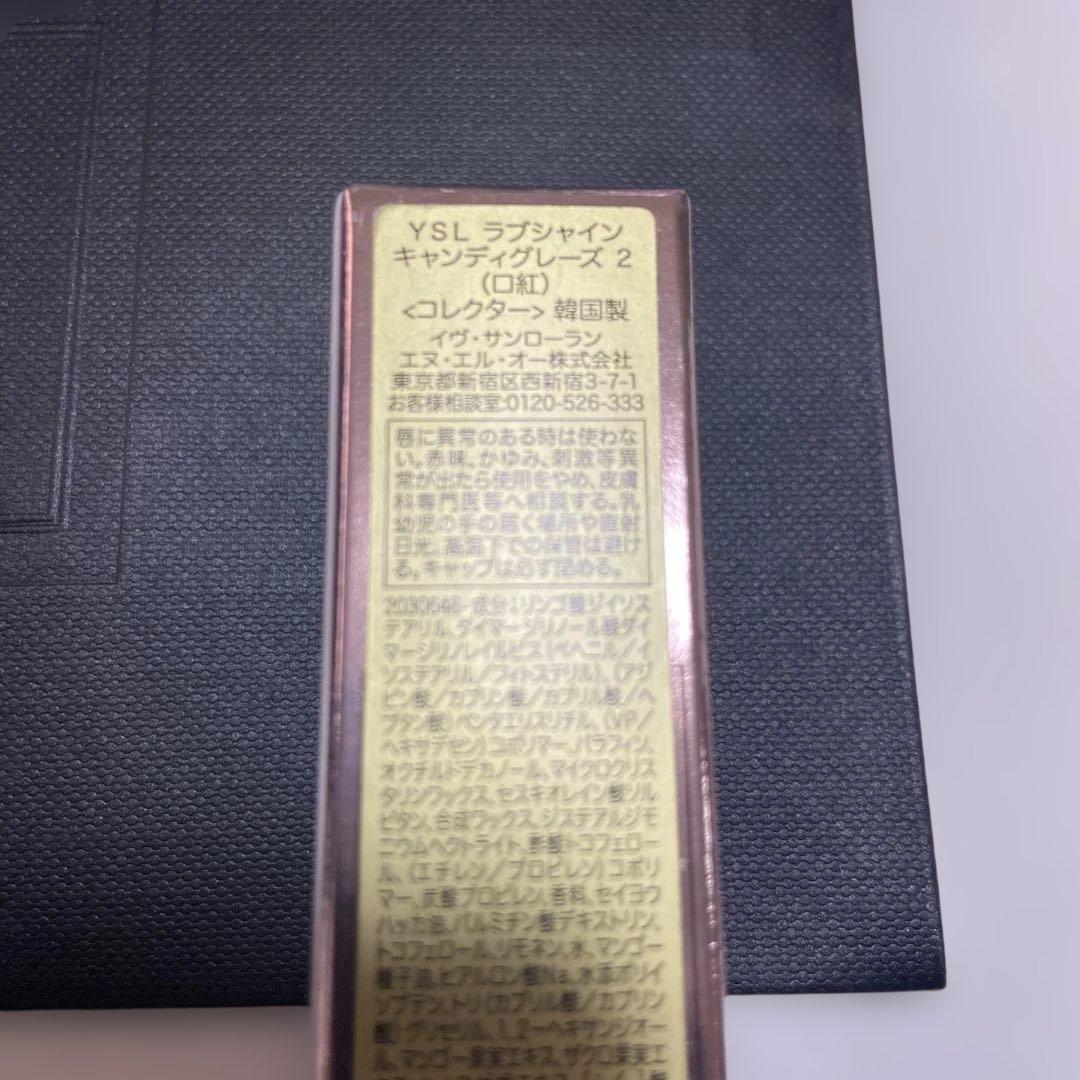 YSL ラブシャイン
キャンディグレーズ 2
(口紅)
<コレクター> 韓国製
イヴ・サンローラン
エヌ・エル・オー株式会社
東京都新宿区西新宿3-7-1
お客様相談室:0120-526-333
唇に異常のある時は使わな
い。赤味、かゆみ、刺激等異
常が出たら使用をやめ、皮膚
科専門医等へ相談する。乳
幼児の手の届く場所や直射
日光、高温下での保管は避け
る。キャップは必ず閉める。
成分:リンゴ酸ジイソス
テアリル、ダイマージリノール酸ダイ
マージリノレイルビス(ベヘニル/イ
ソステアリル/フィトステリル)、(アジ
ピン酸/カプリン酸/カプリル酸/ヘ
プタン酸)ペンタエリスリチル、(VP/
ヘキサデセン)コポリマー、パラフィン、
オクチルドデカノール、マイクロクリス
タリンワックス、セスキオレイン酸ソル
ビタン、合成ワックス、ジステアルジモ
ニウムヘクトライト、酢酸トコフェロー
ル、(エチレン/プロピレン)コポリ
マー、炭酸プロピレン、香料、セイヨウ
ハッカ油、パルミチン酸デキストリン、
トコフェロール、リモネン、水、マンゴー
種子油、ヒアルロン酸Na、水添ポリイ
ソブテン、トリ(カプリル酸/カプリン
酸)グリセリル、1,2-ヘキサンジオー
ル、マンゴー果実エキス、ザクロ果実エ